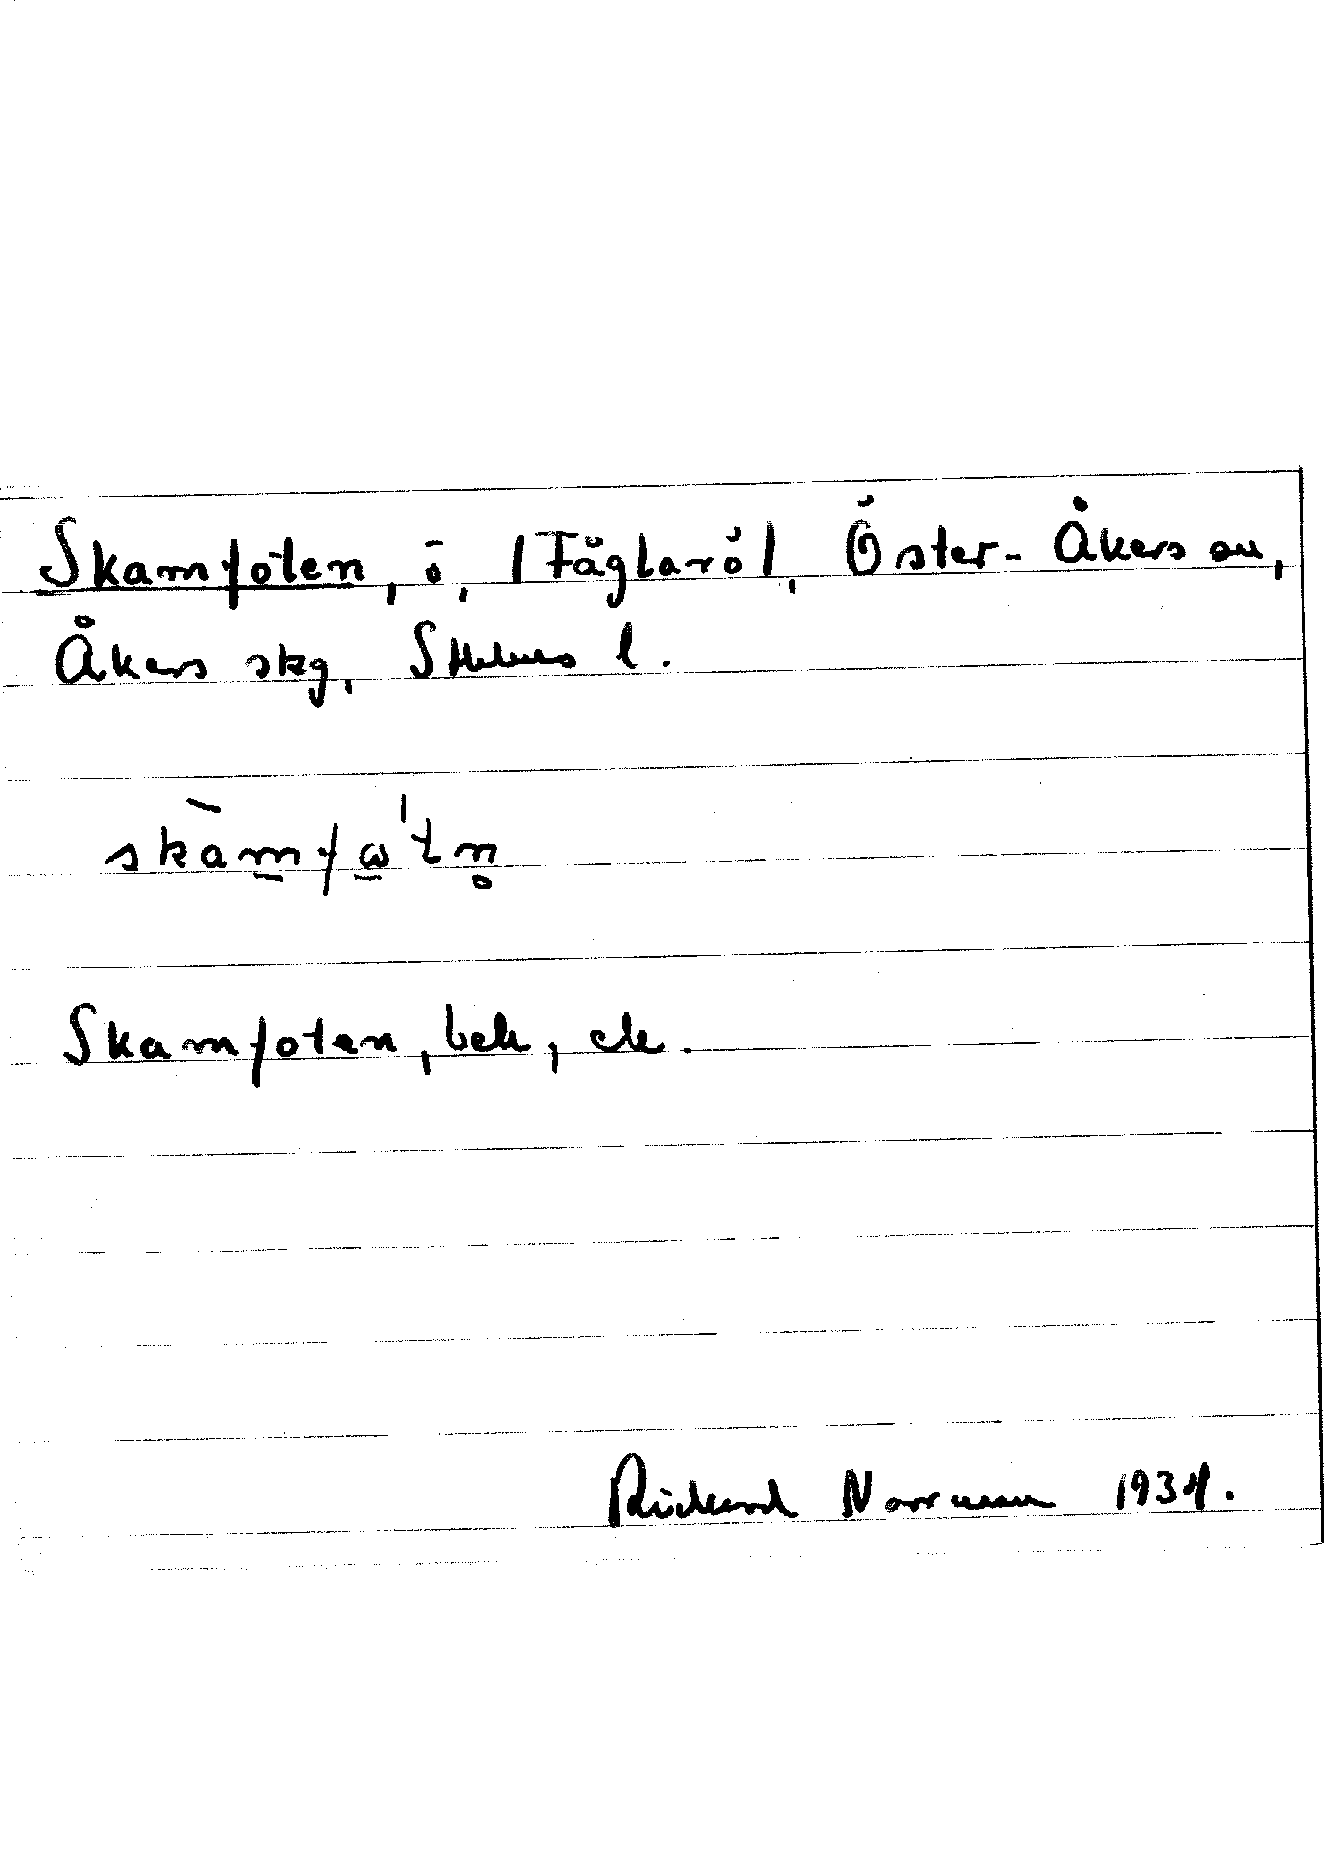 Skamfoten, ö, /Fåglarö/, Öster-Åkers sn,
Åkers skg, Sthlms l.
skàmfω̲'tn̥
Skamfoten, bek, ek.
Rickard Norrman 1934.